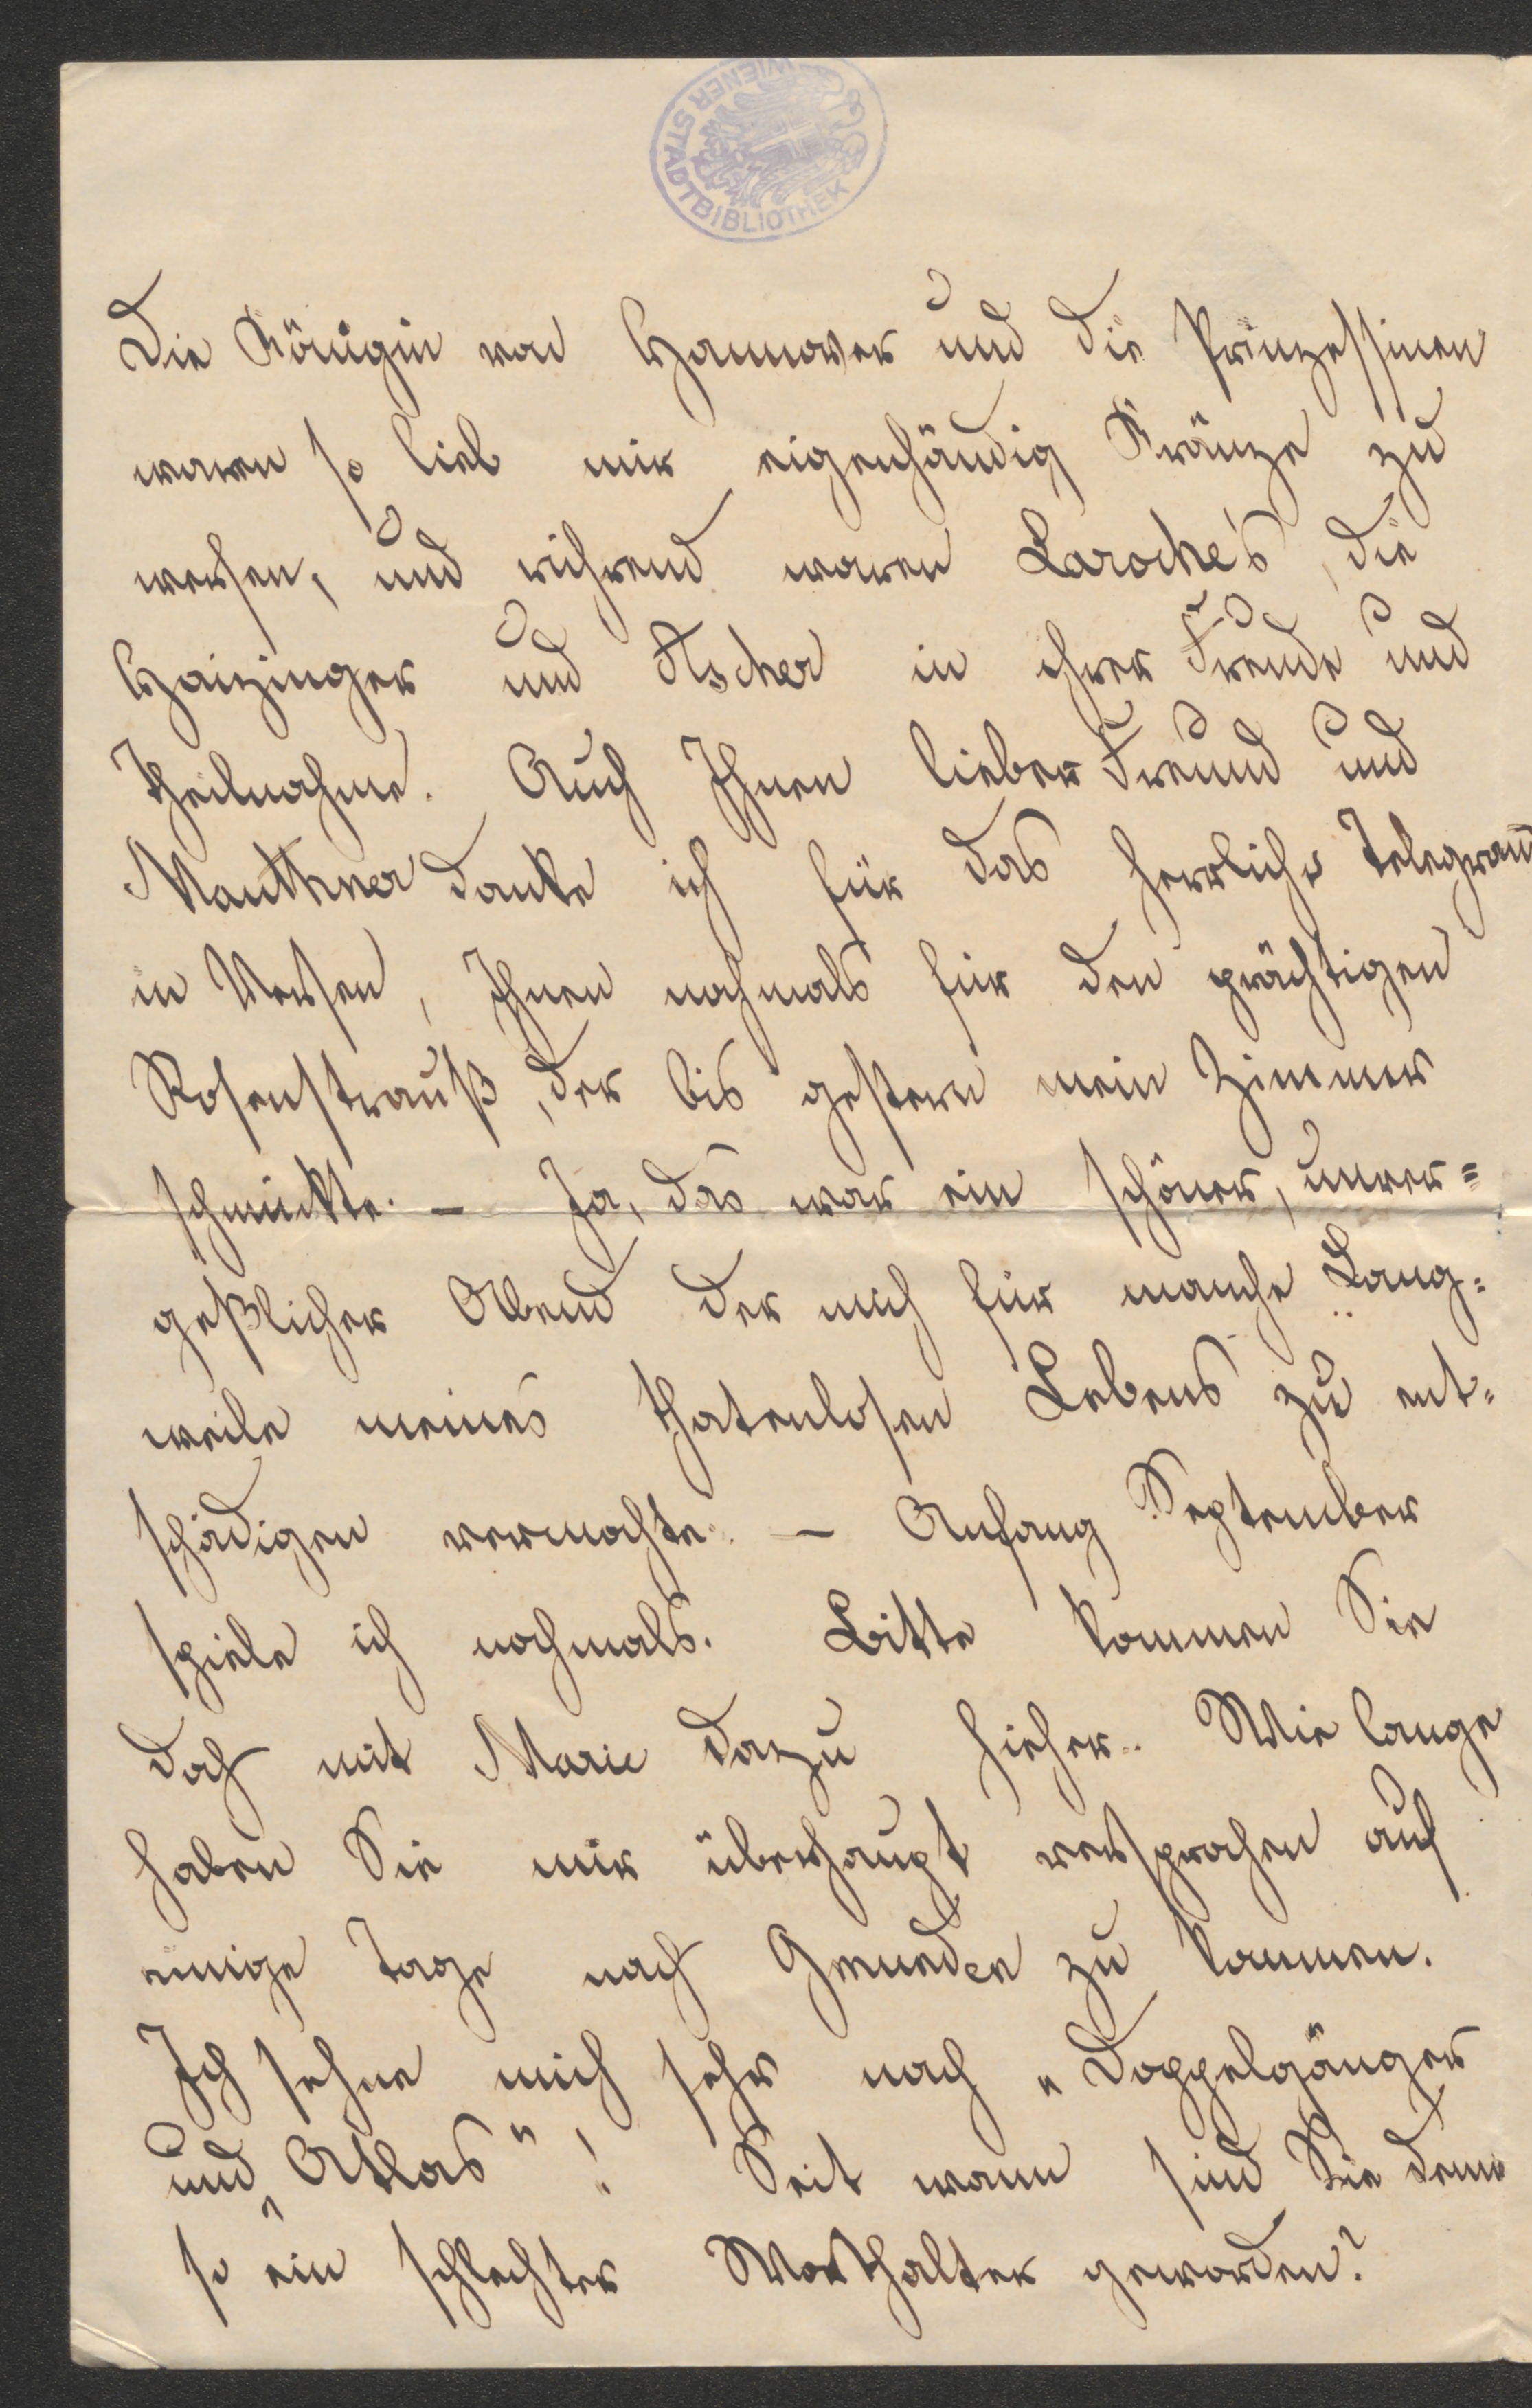 WIENER STADTBIBLIOTHEK
Die Königin von Hannover und die Prinzessinen
waren so lieb mir eigenhändig Kränze zu
werfen, und rührend waren Laroche's, die
Haizinger und Ascher in ihrer Freude und
Theilnahme. Auch Ihnen lieber Freund und
Mauthner danke ich für das herrliche Telegram̄
in Versen, Ihnen nochmals für den prächtigen
Rosenstrauß, der bis gestern mein Zimmer
schmückte. – Ja, das war ein schöner, unver=
geßlicher Abend der mich für manche Lang=
weile meines thatenlosen Lebens zu ent=
schädigen vermochte. – Anfang September
spiele ich nochmals. Bitte kommen Sie
doch mit Marie dazu hieher. Wie lange
haben Sie mir überhaupt versprochen auf
einige Tage nach Gmunden zu kommen.
Ich sehne mich sehr nach „Doppelgänger
und „Atlas"! Seit wann sind Sie denn
so ein schlechter Worthalter geworden?